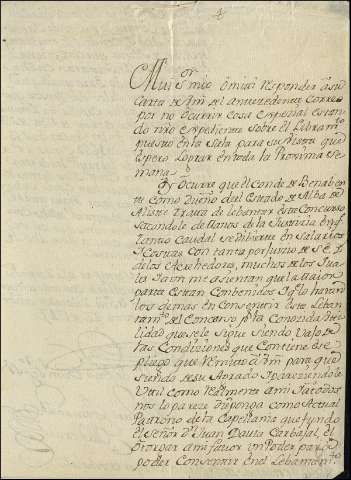 4
Mui S.or
mio omiti responder a su
Carta de Vm del antezedente Correo
por no ocurrir cosa espezial estan
do nro expediente sobre el Libram.to
puesto en la Sala para su vista que
espero lograr en toda la Proxima Se
mana.
Oy Ocurre que el Conde de Benaben
te como Dueño del Estado de Alba de
Aliste trata de lebantar este Concurso
sacandole de manos de la Justicia en q.e
tanto Caudal se Dibierte en Salarios
y Costas con tanto perjuicio de S. E. y
de los Acrehedores, muchos de los qua
les Ia on me asientan que la maior
parte estan Conbenidos y q.e lo haran
los demas en Conseguir este Leban
tam.to del Concurso p.r la Conozida Vti
lidad que se le sigue siendo Vajo de
las Condiciones que Contiene ese
pliego que remito a Vm para que
siendo de su Agrado y pareziendole
Vtil como realmente a mi y a todos
nos lo pareze disponga como Actual
Patrono de la Capellania que fundo
el Señor D.n Juan Davila Carbajal, el
otorgar a mi favor un Poder para
poder Consentir en el Lebantam.to